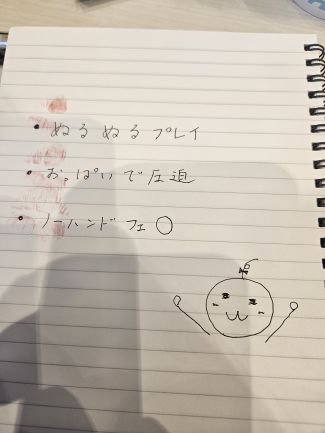 ・ぬるぬるプレイ
・おっぱいで圧迫
・ノーハンドフェ○